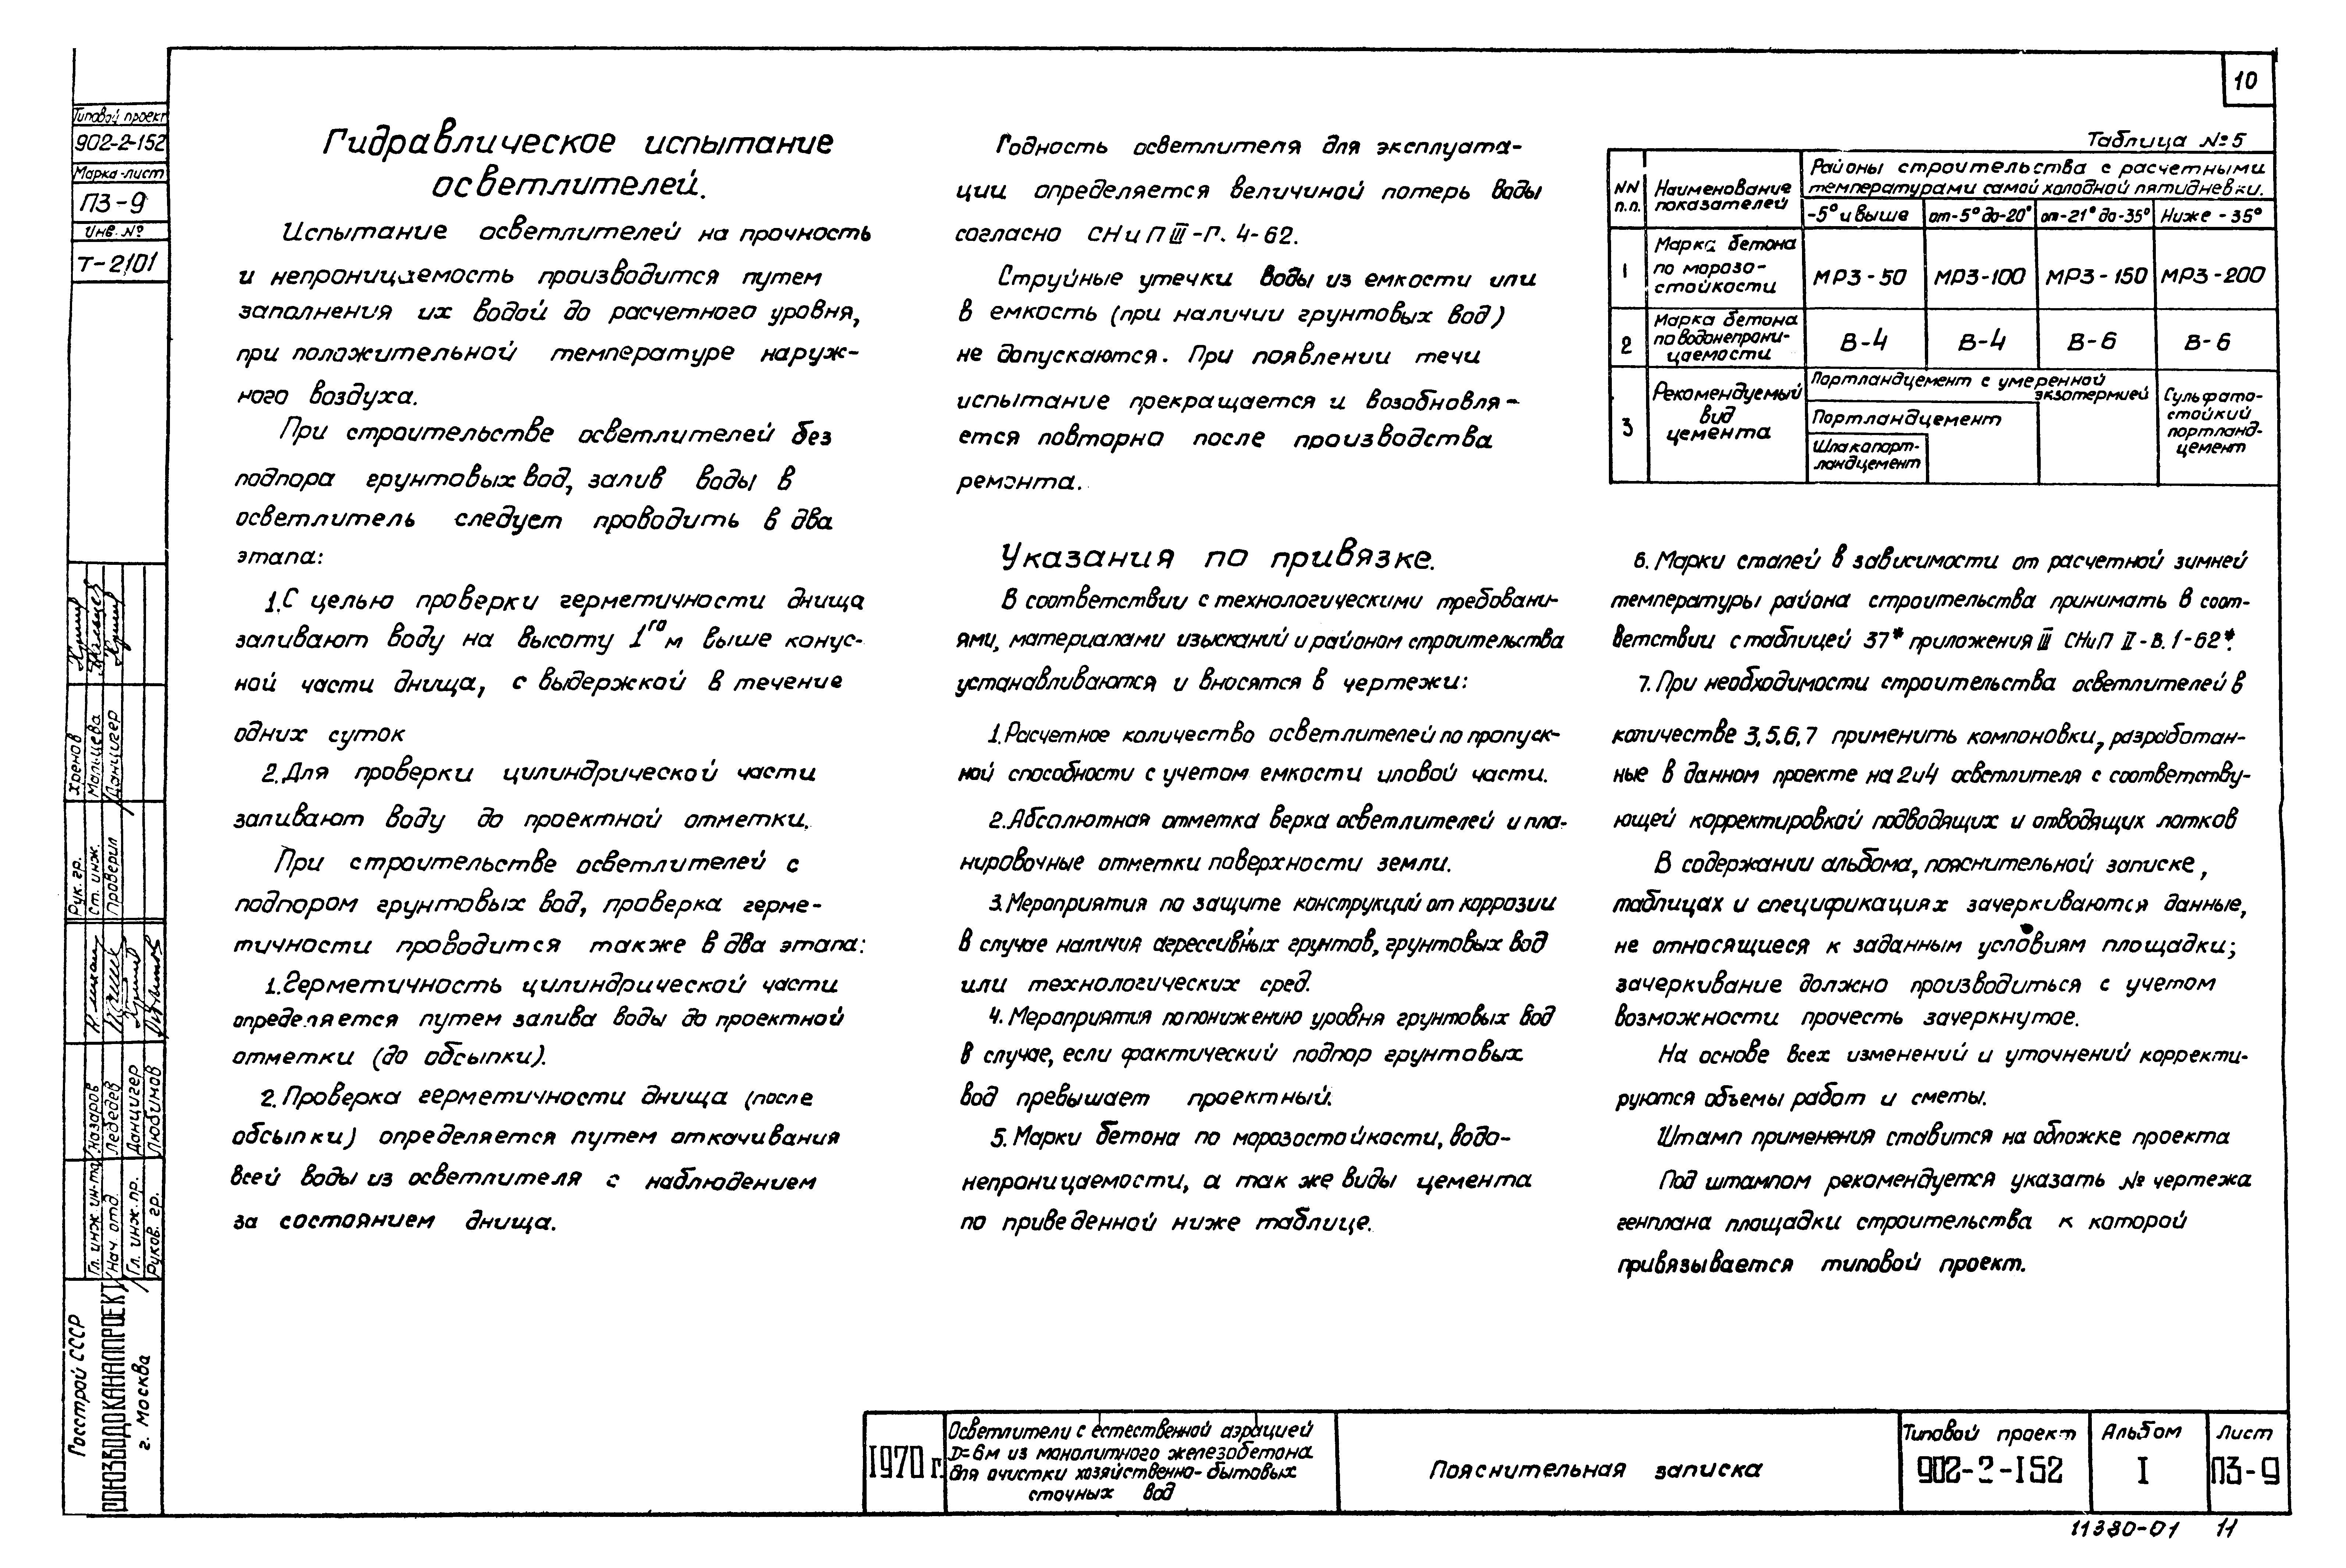 10
Типовой проект
902-2-152
Марка-лист
ПЗ-9
Инв. №
Т-2101
Гидравлическое испытание
осветлителей.
Испытание осветлителей на прочность
и непроницаемость производится путем
заполнения их водой до расчетного уровня,
при положительной температуре наруж-
ного воздуха.
При строительстве осветлителей без
подпора грунтовых вод, залив воды в
осветлитель следует проводить в два
этапа:
1. С целью проверки герметичности днища
заливают воду на высоту 1го м выше конус-
ной части днища, с выдержкой в течение
одних суток
2. Для проверки цилиндрической части
заливают воду до проектной отметки.
При строительстве осветлителей с
подпором грунтовых вод, проверка герме-
тичности проводится также в два этапа:
1. Герметичность цилиндрической части
определяется путем залива воды до проектной
отметки (до обсыпки).
2. Проверка герметичности днища (после
обсыпки) определяется путем откачивания
всей воды из осветлителя с наблюдением
за состоянием днища.
Годность осветлителя для эксплуата-
ции определяется величиной потерь воды
согласно СНиП III-Г. 4-62.
Струйные утечки воды из емкости или
в емкость (при наличии грунтовых вод)
не допускаются. При появлении течи
испытание прекращается и возобновля-
ется повторно после производства
ремонта.
Указания по привязке.
В соответствии с технологическими требовани-
ями, материалами изысканий и районом строительства
устанавливаются и вносятся в чертежи:
1. Расчетное количество осветлителей по пропуск-
ной способности с учетом емкости иловой части.
2. Абсолютная отметка верха осветлителей и пла-
нировочные отметки поверхности земли.
3. Мероприятия по защите конструкций от коррозии
в случае наличия агрессивных грунтов, грунтовых вод
или технологических сред.
4. Мероприятия по понижению уровня грунтовых вод
в случае, если фактический подпор грунтовых
вод превышает проектный.
5. Марки бетона по морозостойкости, водо-
непроницаемости, а так же виды цемента
по приведенной ниже таблице.
Таблица №5
NN п.п. Наименование показателей Районы строительства с расчетными температурами самой холодной пятидневки.
-5° и выше от-5° до-20° от-21° до-35° Ниже -35°
1 Марка бетона по морозо-стойкости МРЗ-50 МРЗ-100 МРЗ-150 МРЗ-200
2 Марка бетона по водонепрони-цаемости В-4 В-4 В-6 В-6
3 Рекомендуемый вид цемента Портландцемент с умеренной экзотермией Сульфато-стойкий портланд-цемент
Портландцемент
Шлакопорт-ландцемент
6. Марки сталей в зависимости от расчетной зимней
температуры района строительства принимать в соот-
ветствии с таблицей 37* приложения III СНиП II-В.1-62*.
7. При необходимости строительства осветлителей в
количестве 3,5,6,7 применить компоновки, разработан-
ные в данном проекте на 2 и 4 осветлителя с соответству-
ющей корректировкой подводящих и отводящих лотков
В содержании альбома, пояснительной записке,
таблицах и спецификациях зачеркиваются данные,
не относящиеся к заданным условиям площадки;
зачеркивание должно производиться с учетом
возможности прочесть зачеркнутое.
На основе всех изменений и уточнений корректи-
руются объемы работ и сметы.
Штамп применения ставится на обложке проекта
Под штампом рекомендуется указать № чертежа
генплана площадки строительства к которой
привязывается типовой проект.
Рук. гр. Хренов
Ст. инж. Мальцева
Проверил Данцигер
Гл. инж. ин-та Назаров
Нач. отд. Лебедев
Гл. инж. пр. Данцигер
Руков. гр. Любимов
Госстрой СССР
СОЮЗВОДОКАНАЛПРОЕКТ
г. Москва
1970 г.
Осветлители с естественной аэрацией
D=6м из монолитного железобетона
для очистки хозяйственно-бытовых
сточных вод
Пояснительная записка
Типовой проект
902-2-152
Альбом
I
Лист
ПЗ-9
11380-01 11